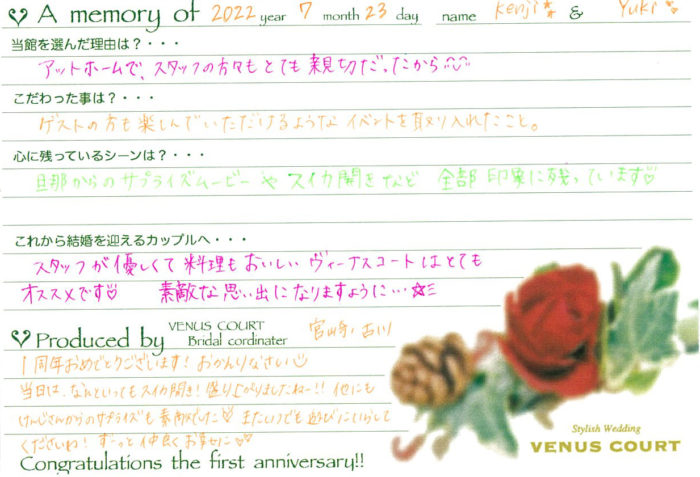 A memory of 2022 year 7 month 23 day name Kenji & Yuki
当館を選んだ理由は?・・・
アットホームで、スタッフの方々もとても親切だったから
こだわった事は?・・・
ゲストの方も楽しんでいただけるようなイベントを取り入れたこと。
心に残っているシーンは?・・・
旦那からのサプライズムービーやスイカ開きなど 全部印象に残っています♡
これから結婚を迎えるカップルへ・・・
スタッフが優しくて料理もおいしいヴィーナスコートはとても
オススメです♡ 素敵な思い出になりますように…☆彡
Produced by VENUS COURT Bridal cordinater 宮崎・古川
1周年おめでとうございます!おかえりなさい
当日は、なんといってもスイカ開き!盛り上がりましたねー!!他にも
けんじさんからのサプライズも素敵でした♡ またいつでも遊びにいらして
くださいね!ずーっと仲良くお幸せに♡♡
Congratulations the first anniversary!!
Stylish Wedding
VENUS COURT